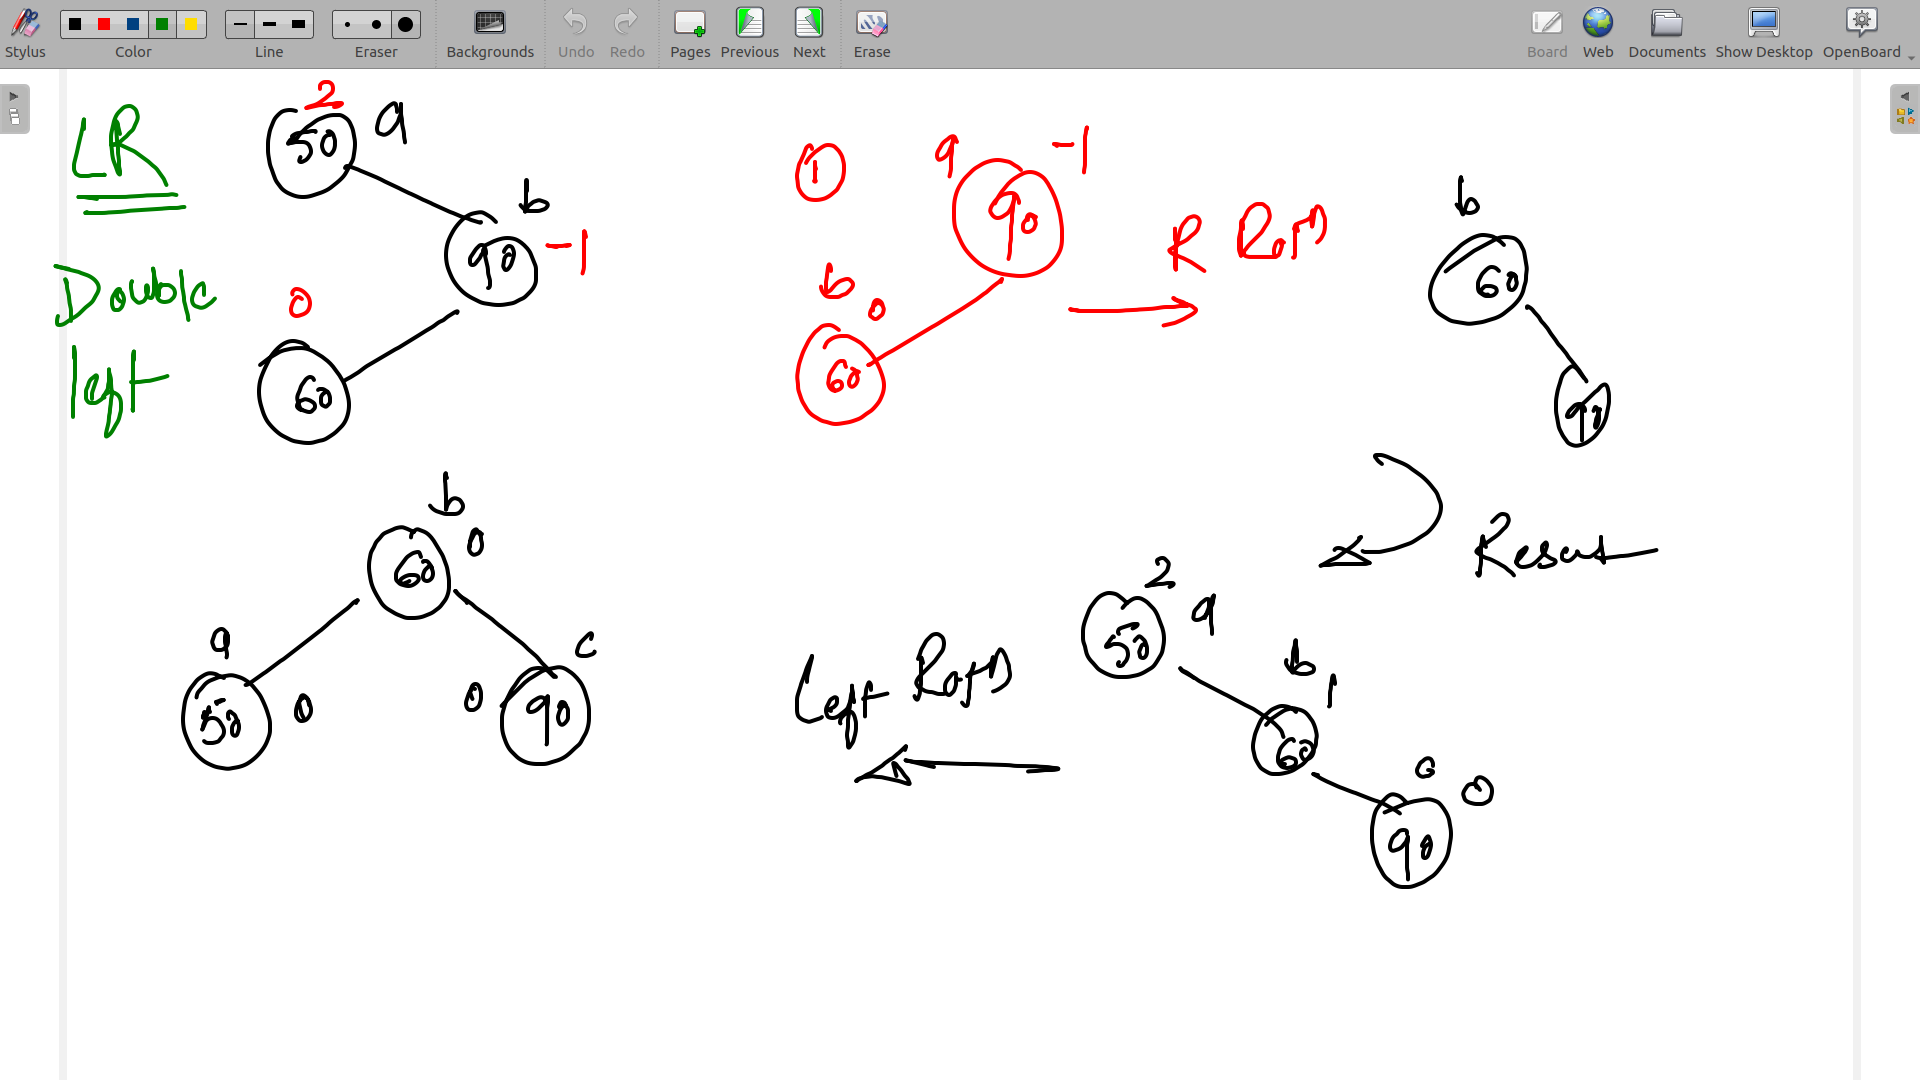 Stylus
Color
Line
Eraser
Backgrounds
Undo
Redo
Pages
Previous
Next
Erase
Board
Web
Documents
Show Desktop
OpenBoard
LR
Double
left
2
50
a
b
90
-1
0
60
1
a
-1
90
b
0
60
R Rotn
b
60
90
b
60
0
a
50
0
c
0
90
Left Rotn
2
50
a
b
1
60
0
90